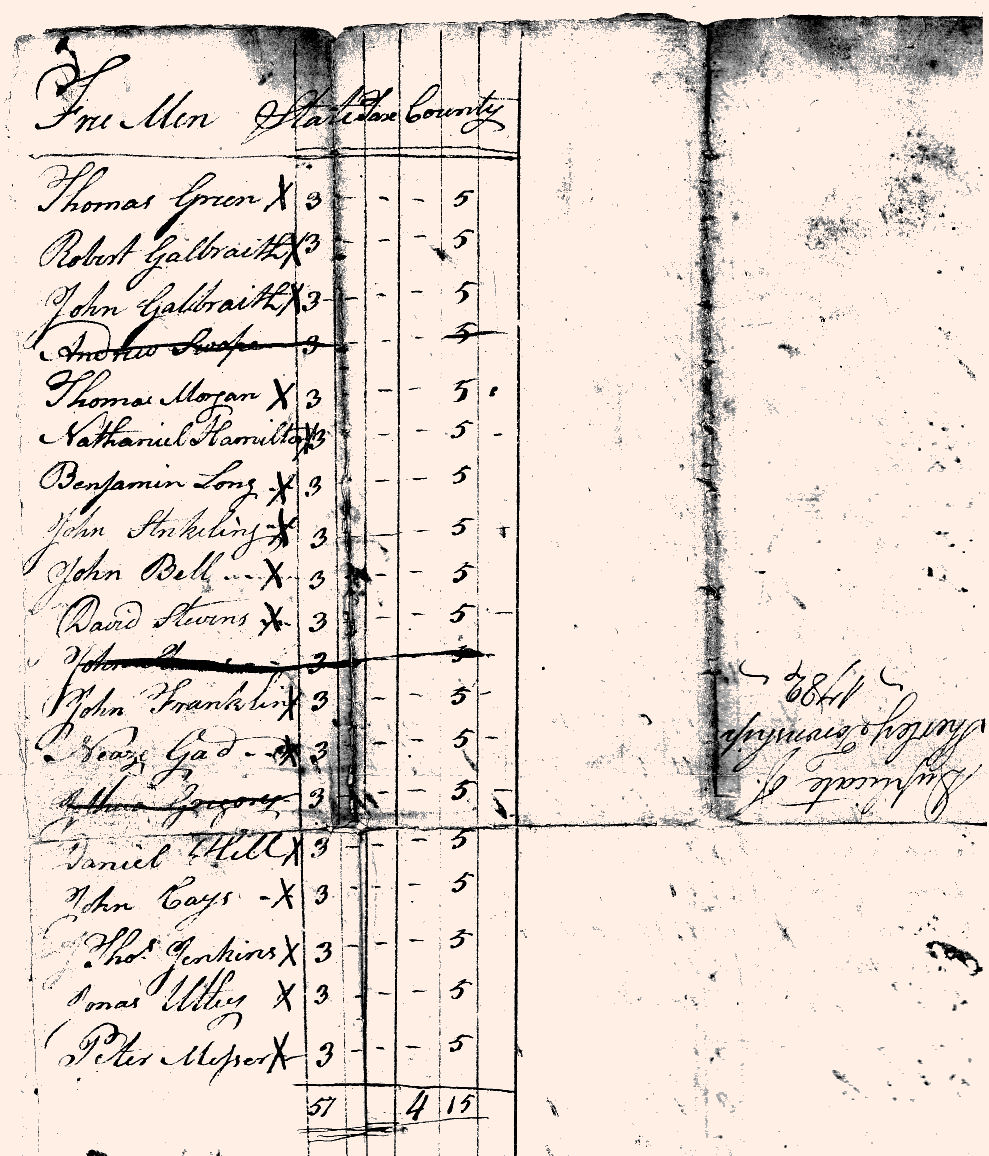 Free Men State Tax County
Thomas Green X 3 - - 5
Robert Galbraith X 3 - - - 5
John Galbraith X 3 - - - 5
Andrew Swope 3 5
Thomas Morgan X 3 - - 5
Nathaniel Hamilton X 3 - - 5 -
Benjamin Long X 3 - - 5
John Strikeling X 3 - 5
John Bell X 3 - - 5
David Stevins X 3 - - 5 -
John 3 5
John Franklin X 3 - - 5 -
Gad X 3 - - 5 -
Gregorey 3 - - 5 -
Daniel Hill X 3 - - 5
John Cays - X 3 - - 5
Thos. Jenkins X 3 - - - 5
Jonas X 3 - - 5
Peter Messer X 3 - - 5
57 4 15
Duplicate of
Sherley Township
1782